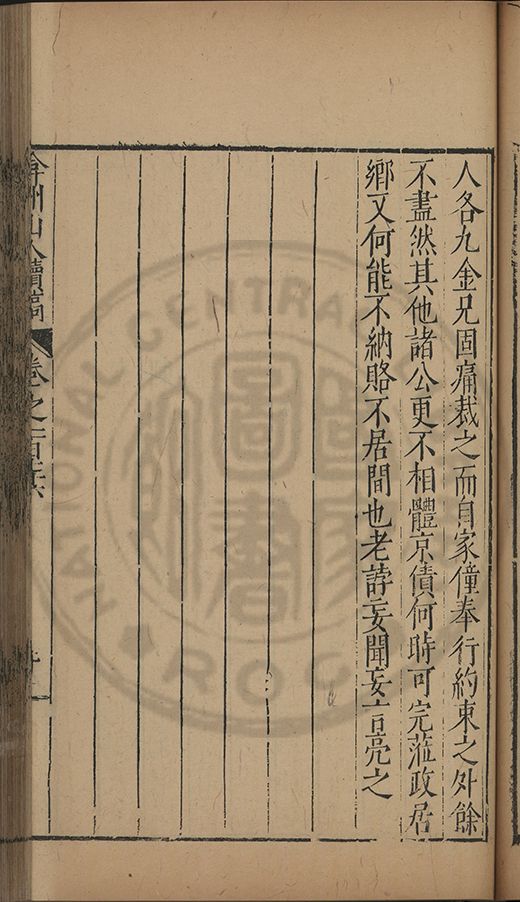 人各九金兄固痛裁之而自家僮奉行約束之外餘
不盡然其他諸公更不相體京債何時可完蒞政居
鄉又何能不納賂不居間也老誖妄聞妄言亮之
弇州山人續稿
卷之一百
NATIONAL CENTRAL
R.O.C.
國家
圖書